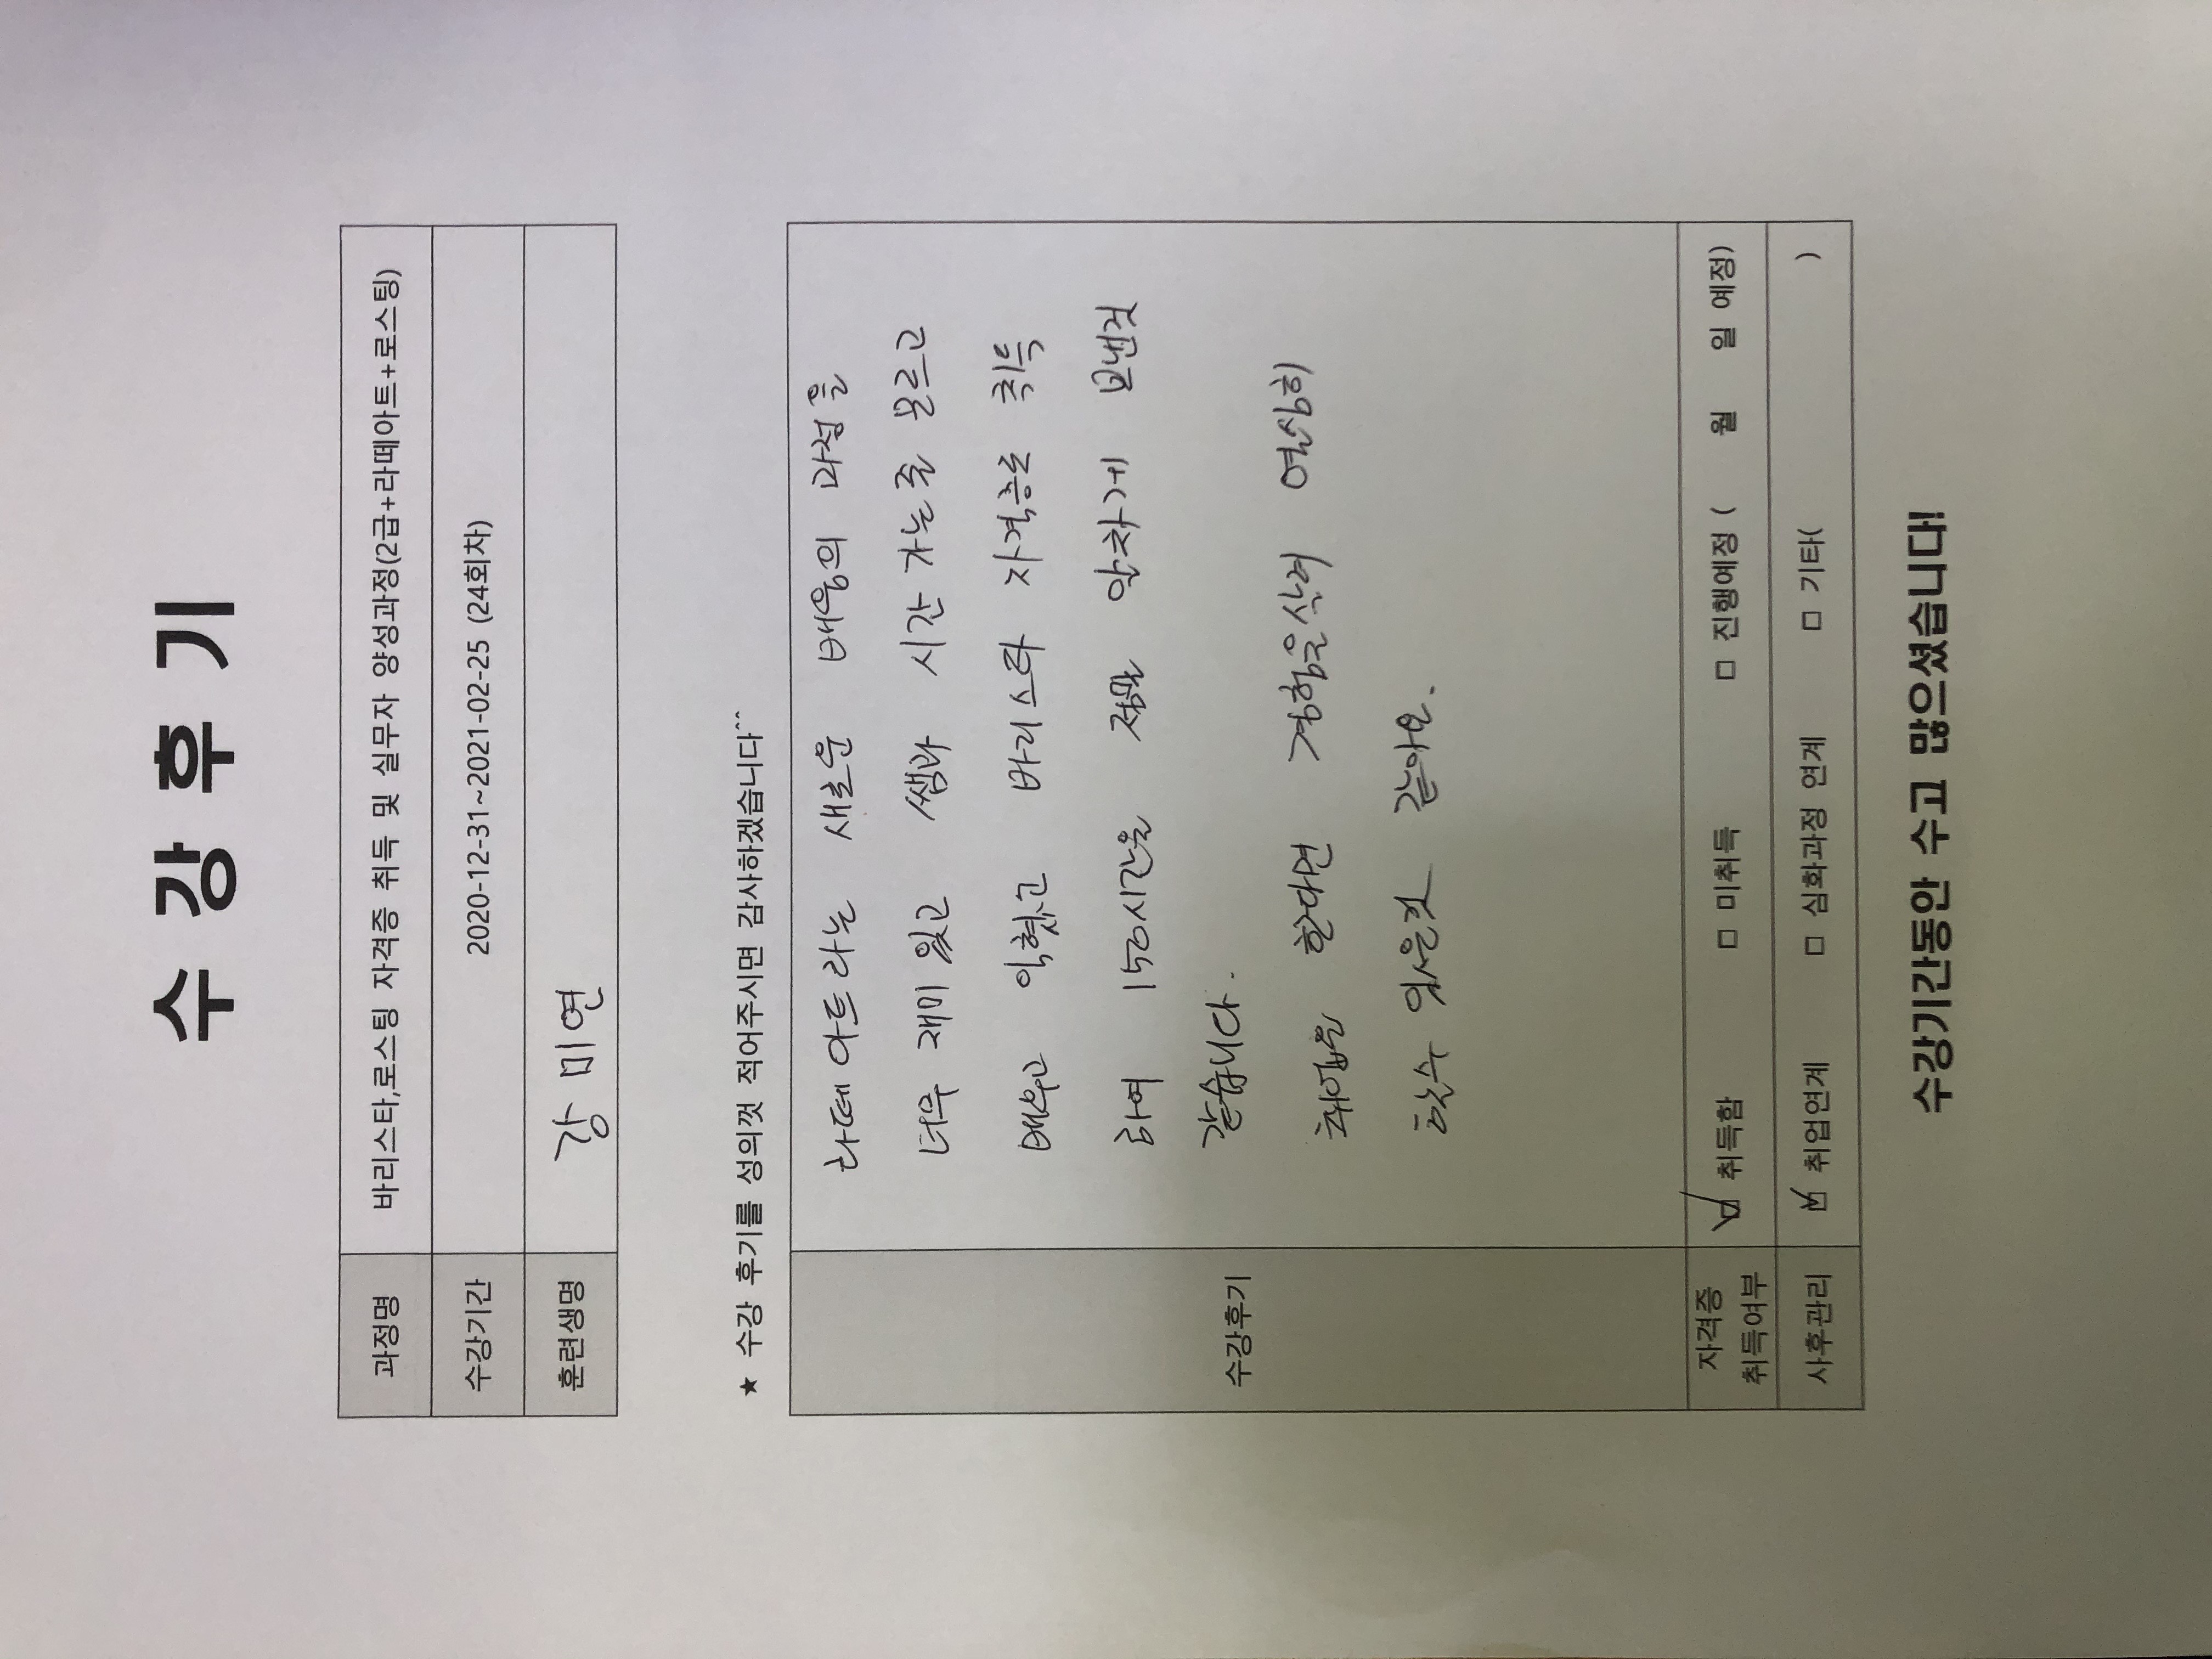 수 강 후 기
과정명 바리스타,로스팅 자격증 취득 및 실무자 양성과정(2급+라떼아트+로스팅)
수강기간 2020-12-31~2021-02-25 (24회차)
훈련생명 강 미 연
★ 수강 후기를 성의껏 적어주시면 감사하겠습니다^^
수강후기
라떼아트라는 새로운 배움의 과정을
너무 재미있고 쌤과 시간 가는줄 모르고
배우고 익혔고 바리스타 자격증도 취득
하여 150시간을 정말 알차게 보낸것
같습니다.
취업을 한다면 경험을살려 열심히
할수 있을것 같아요.
자격증 취득여부 ☑ 취득함 □ 미취득 □ 진행예정 ( 월 일 예정)
사후관리 ☑ 취업연계 □ 심화과정 연계 □ 기타( )
수강기간동안 수고 많으셨습니다!